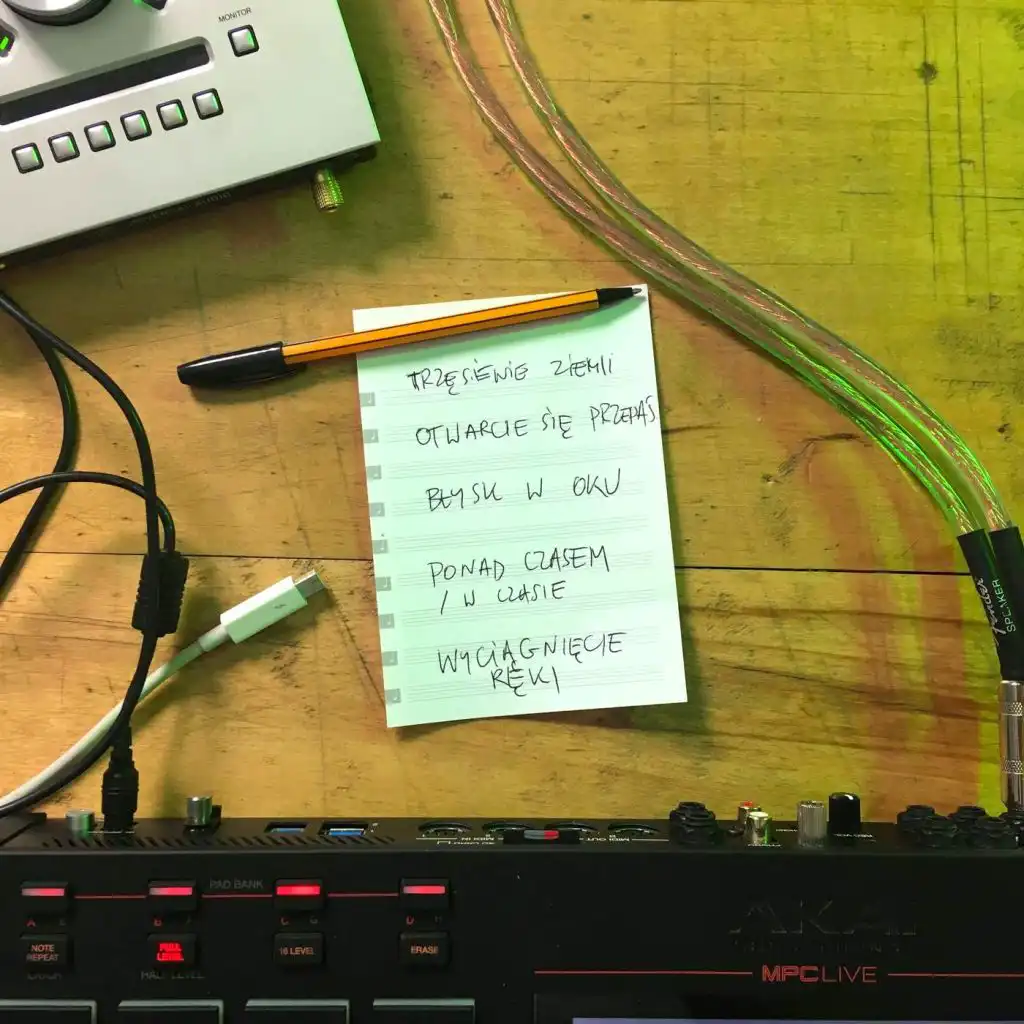 MONITOR
TRZĘSIENIE ZIEMI
OTWARCIE SIĘ PRZEPAŚ
BŁYSK W OKU
PONAD CZASEM
/ W CZASIE
WYCIĄGNIĘCIE
RĘKI
Fender
SPEAKER
MIDI IN
MIDI OUT
PAD BANK
A E B F C G D H
NOTE REPEAT
FULL LEVEL
16 LEVEL
ERASE
HALF LEVEL
AKAI
MPC LIVE